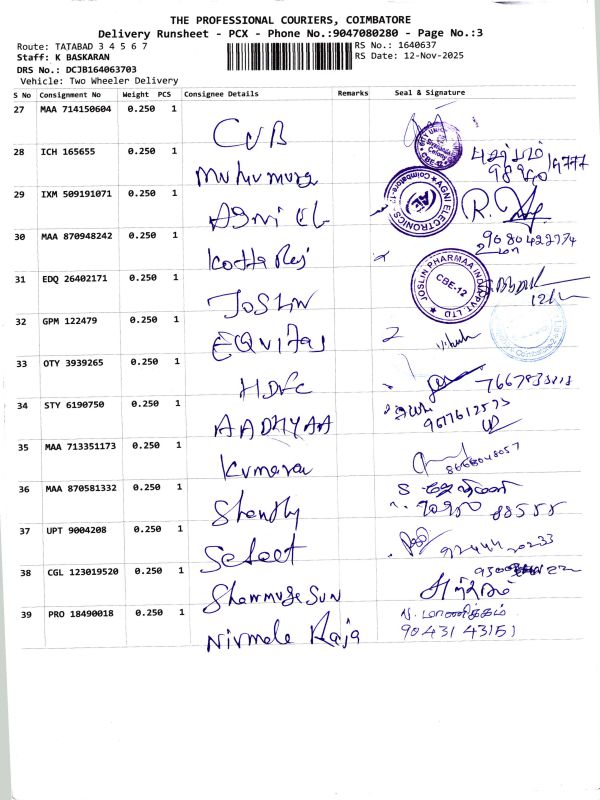 THE PROFESSIONAL COURIERS, COIMBATORE
Delivery Runsheet - PCX - Phone No.:9047080280 - Page No.:3
Route: TATABAD 3 4 5 6 7
RS No.: 1640637
Staff: K BASKARAN
RS Date: 12-Nov-2025
DRS No.: DCJB164063703
Vehicle: Two Wheeler Delivery
S No Consignment No Weight PCS Consignee Details Remarks Seal & Signature
27 MAA 714150604 0.250 1
CUB
28 ICH 165655 0.250 1
Muthumurga
29 IXM 509191071 0.250 1
AGNI EL
AGNI ELECTRONICS Coimbatore-12
AE
30 MAA 870948242 0.250 1
Kotta Raj
9080422774
31 EDQ 26402171 0.250 1
JOSLIN
JOSLIN PHARMAA INDIA PVT. LTD
CBE-12
32 GPM 122479 0.250 1
EQUITAS
33 OTY 3939265 0.250 1
HDFC
34 STY 6190750 0.250 1
AADHYAA
9677612575
35 MAA 713351173 0.250 1
Kumaran
8668048057
36 MAA 870581332 0.250 1
Shanthy
37 UPT 9004208 0.250 1
Select
38 CGL 123019520 0.250 1
Shanmuga Sun
39 PRO 18490018 0.250 1
Nirmala Raja
ந. மாணிக்கம்
90431 43151